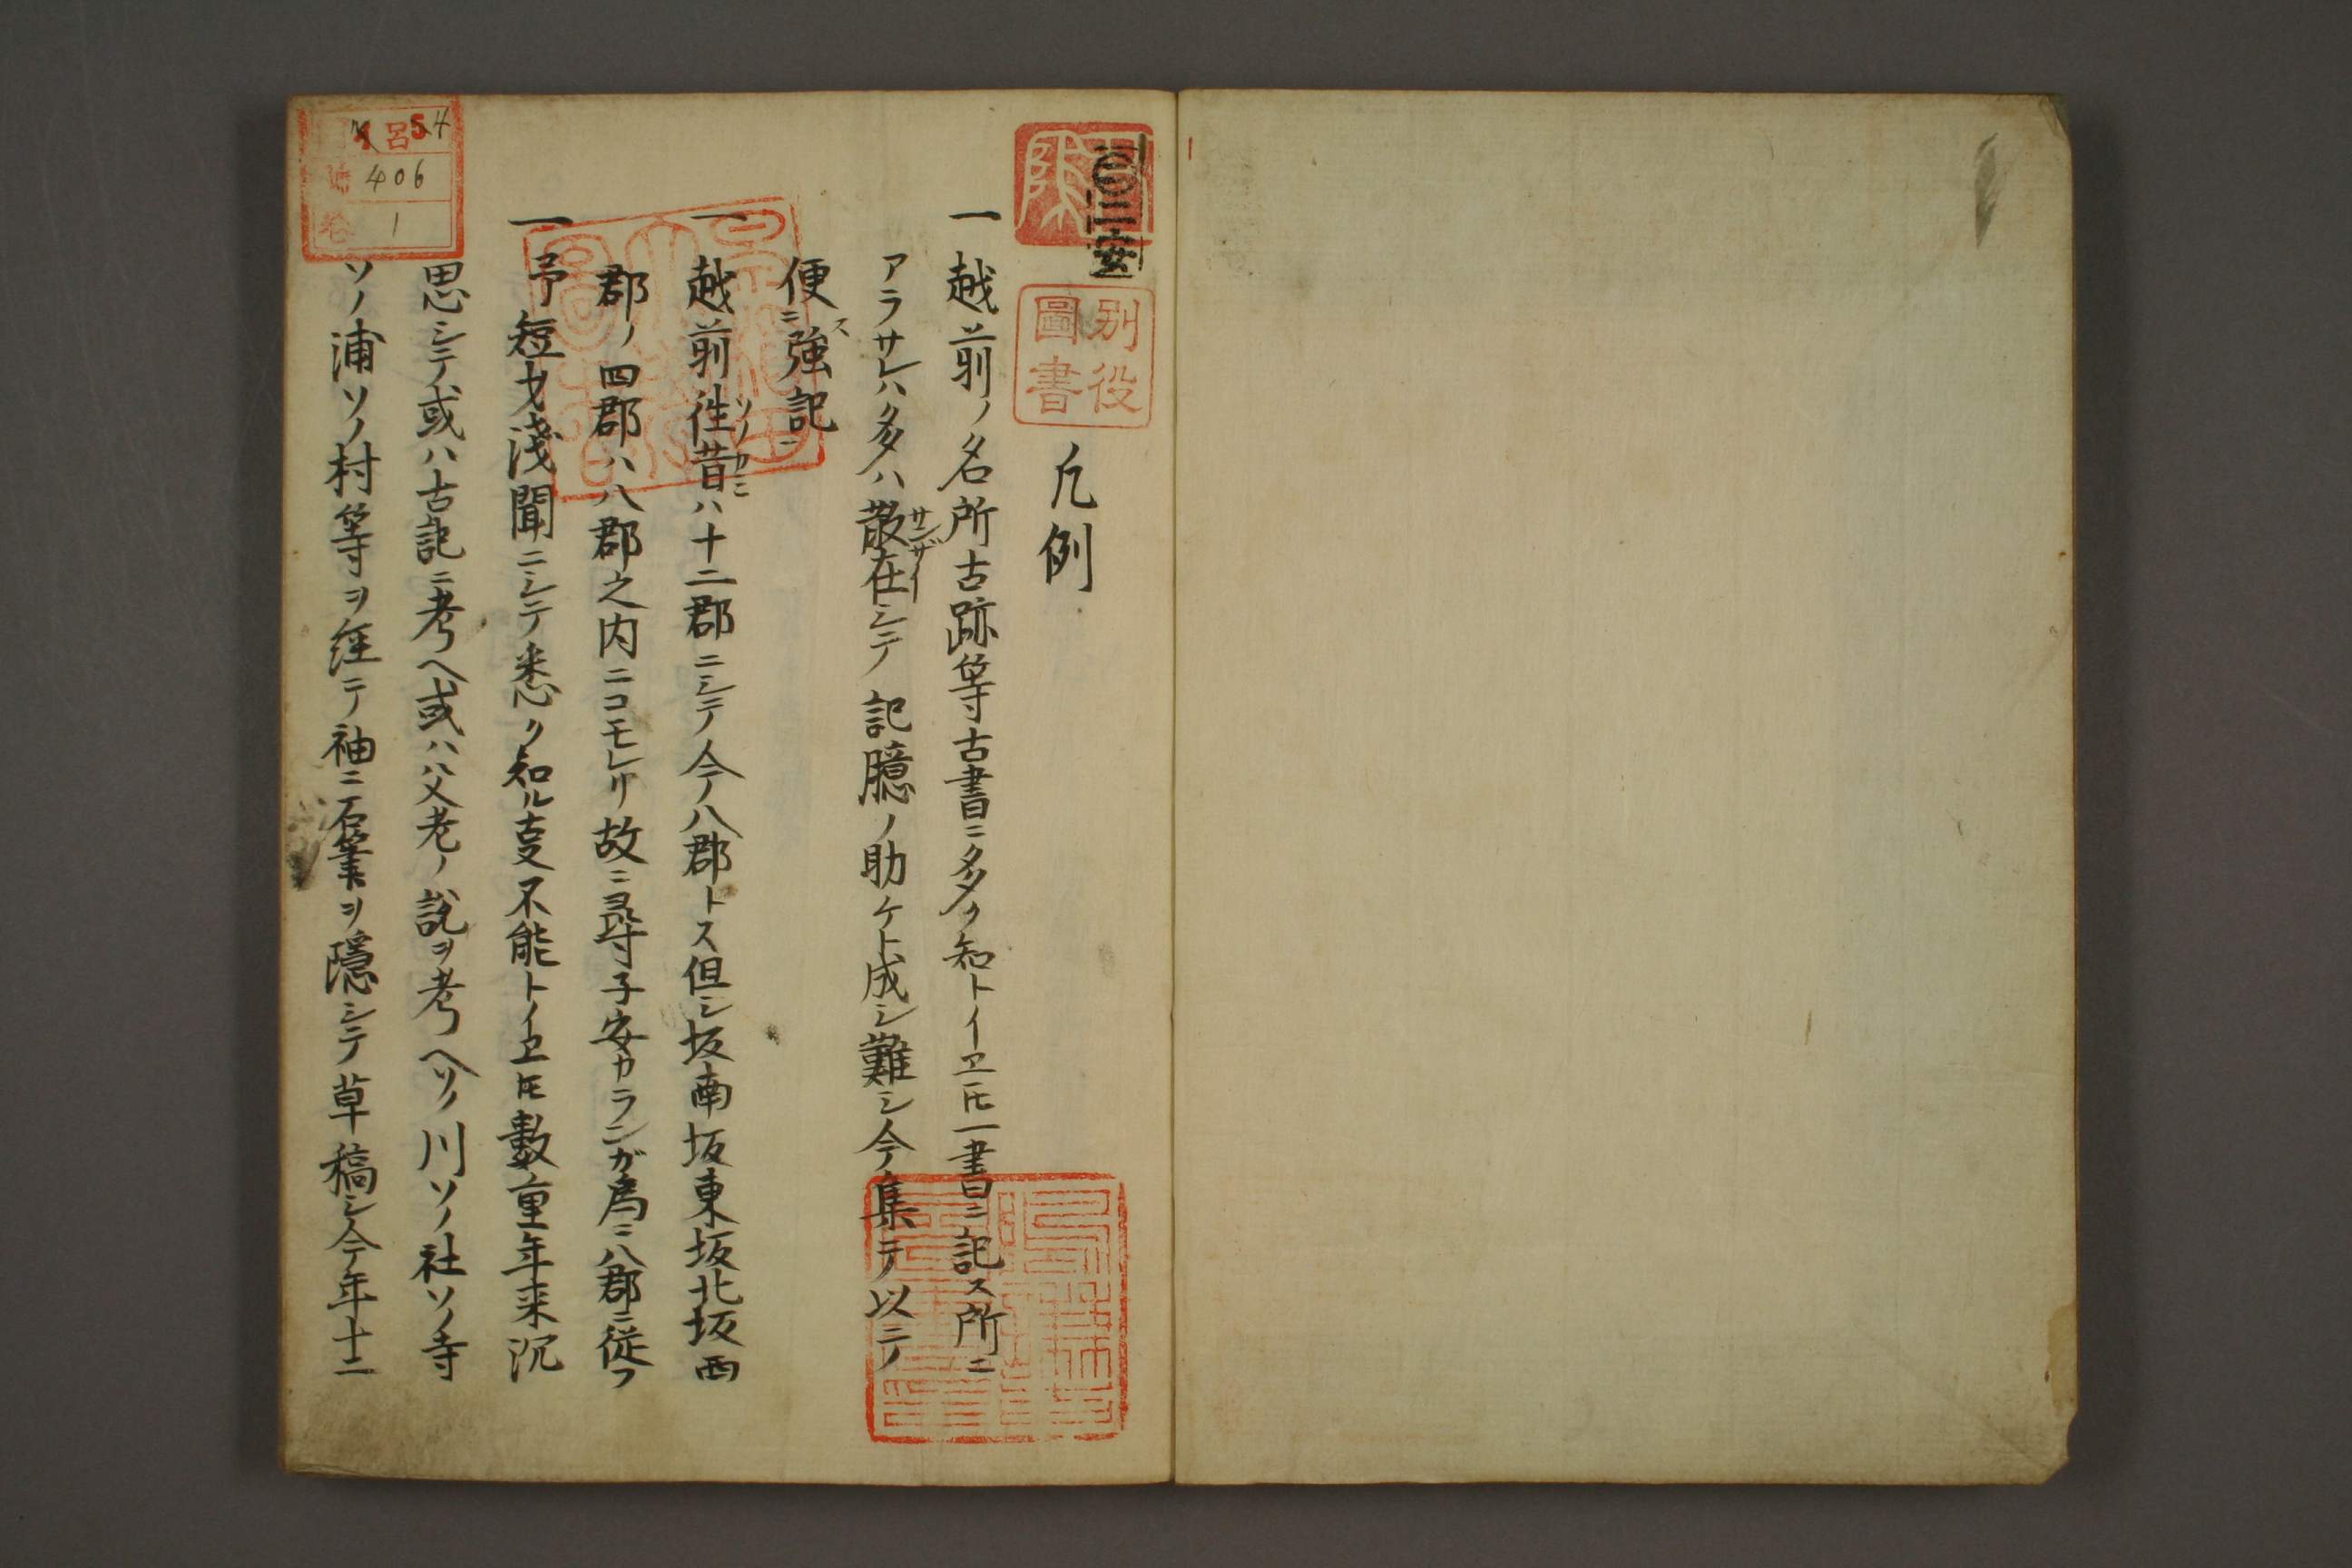 凡例
一越前ノ名所古跡等古書ニ多ク知トイヱ𪜈一書ニ記ス所ニ
アラサレハ多ハ散在シテ記臆ノ助ケト成シ難シ今集テ以テ
サンザイ
便ニス強記ニ
一越前往昔ハ十二郡ニシテ今ハ八郡トス但シ坂南坂東坂北坂西
ソノカミ
郡ノ四郡ハ八郡之内ニコモレリ故ニ尋子安カランガ為ニ八郡ニ従フ
一予短才淺聞ニシテ悉ク知ル叓不能トイヱ𪜈數重年来沉
思シテ或ハ古記ニ考ヘ或ハ父老ノ説ヲ考ヘソノ川ソノ社ソノ寺
ソノ浦ソノ村等ヲ経テ袖ニ石筆ヲ隠シテ草稿シ今年十二
別役
圖書
呂
54
406
卷
1